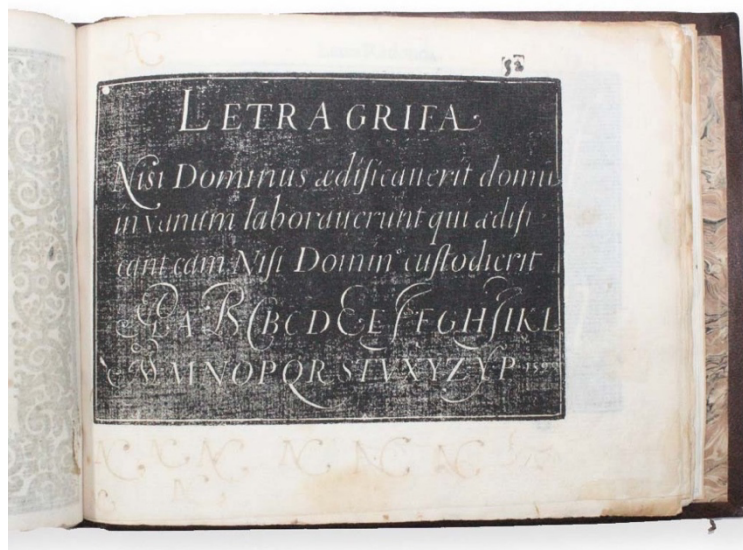 52
LETRA GRIFA
Nisi Dominus ædificauerit domū
in vanum laborauerunt qui ædifi
cant eam Nisi Domin⁹ cuſtodierit
A B C B C D E E F F G H I I K L
M N O P Q R S T V X Y Z Y P